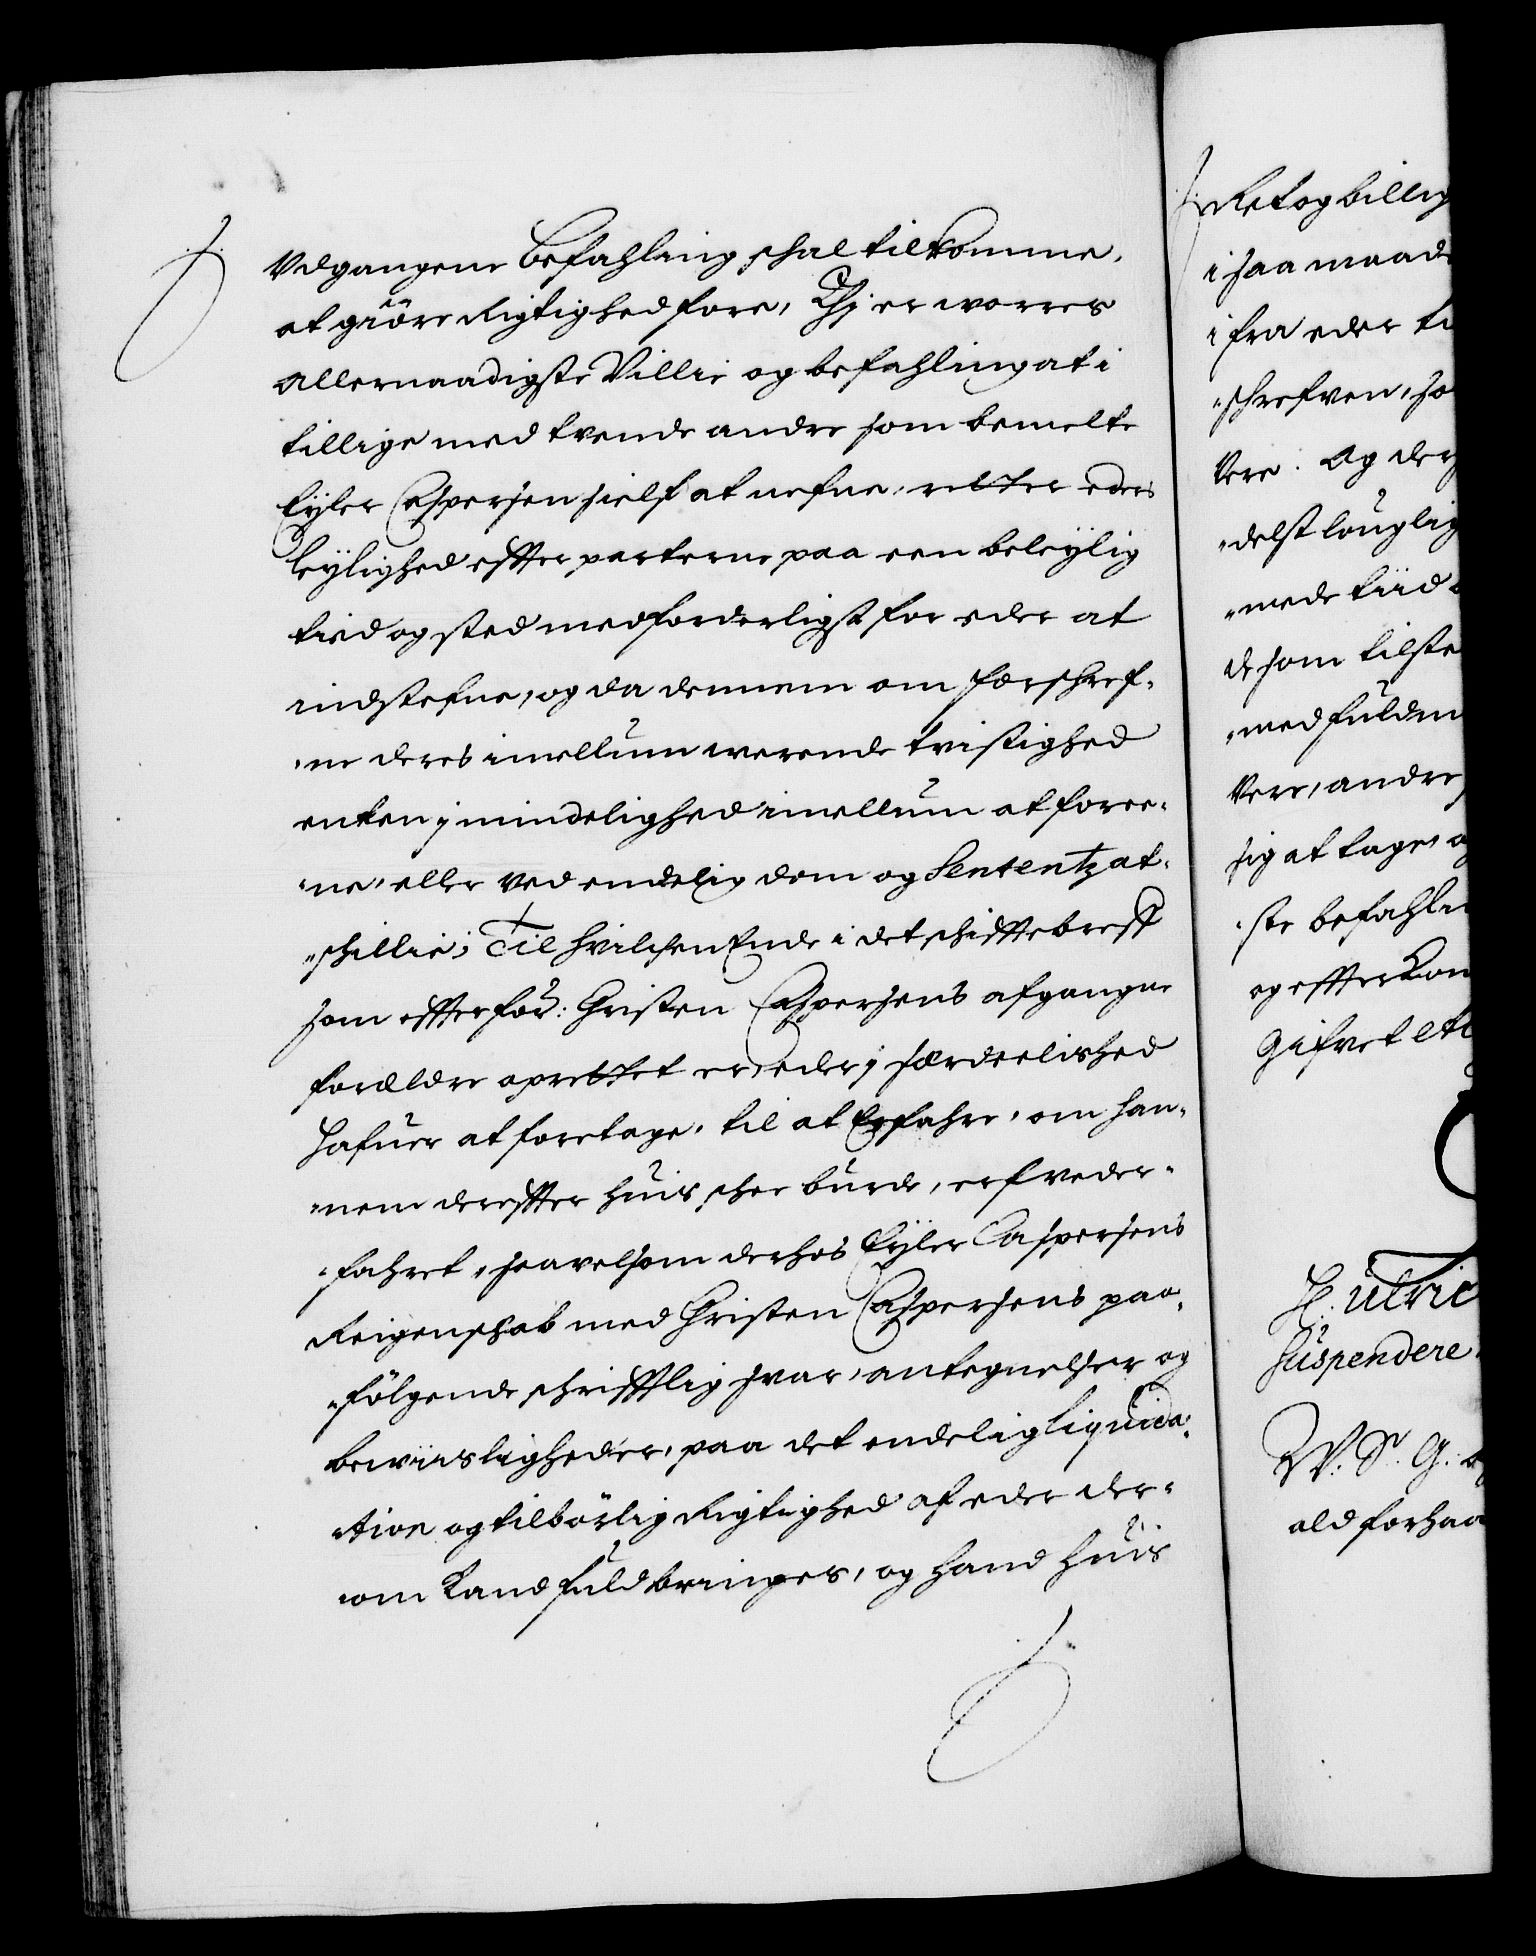 Vdgangene befahling schal tilkomme,
at giöre Rigtighed fore, Thj er worres
Allernaadigste Villie og befahling at i
tillige med tvende andre som bemelte
Eyler Casspersen sielf at nefne, retter eders
leylighed effter parterne paa een beleylig
tied og sted med forderligst for eder at
indstefne, og da dennem om forschref-
ne deres imellum werende tvistighed
enten j mindelighed imellum at foree-
ne, eller ved endelig dom og Sententz at-
schillie; Til hvilchen Ende i det schifftebreff
som effter for: Christen Casspersens afgangne
forældre oprettet er, eder j særdeelished
hafuer at foretage, til at Erfahre, om han-
nem dereffter huis schee burde, er veder-
fahret, saavelsom derhos Eyler Caspersens
Reigenschab med Christen Casspersens paa-
følgende schrifftlig svar, antegnelser og
bewiisligheder, paa det endelig Liquida-
tion og tilbörlig Rigtighed af eder der-
om Kand fuldbringes, og hand huis
Ret og billig
i saa maade
i fra eder ti
schrefven, so
Vere. Og der
delst louglig
mede tiid
de som tilste
med fuldm
Vere, andre
sig at tage, o
ste befahli
og effterkom
Gifvet etc
H. Ulric
Suspendere
W. S. G.
ald forhaa